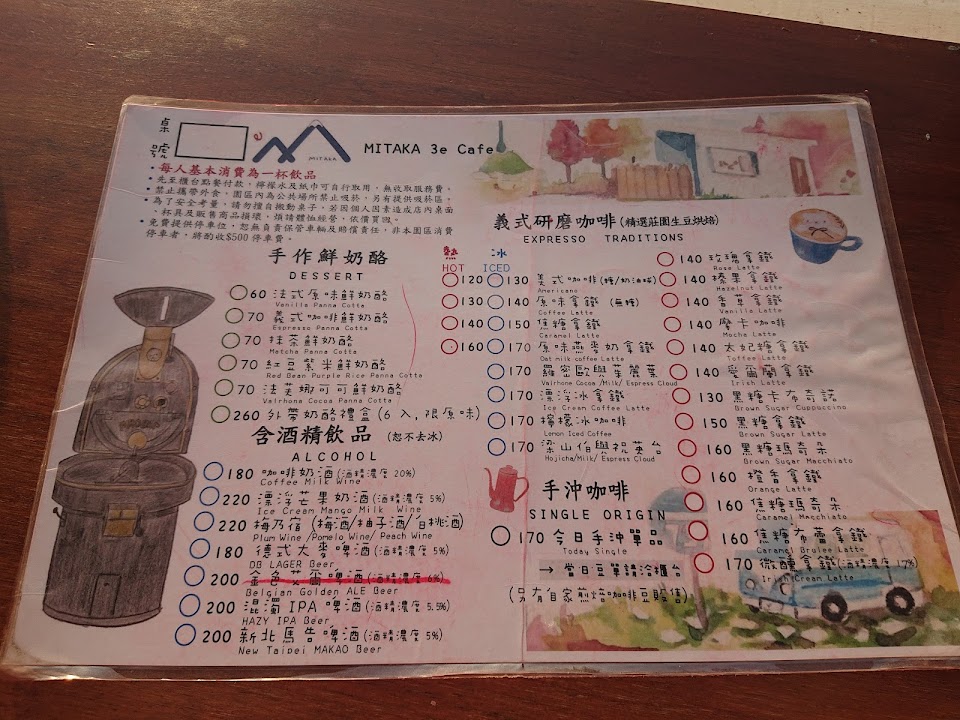 桌號
MITAKA
MITAKA 3e Cafe
•每人基本消費為一杯飲品
•先至櫃台點餐付款，檸檬水及紙巾可自行取用，無收取服務費。
•禁止攜帶外食，園區內為公共場所禁止吸菸，另有提供吸菸區。
•為了安全考量，請勿擅自搬動桌子，若因個人因素造成店內桌面、杯具及販售商品損壞，煩請體恤經營，依價買回。
•免費提供停車位，恕無負責保管車輛及賠償責任，非本園區消費
停車者，將酌收$500 停車費。
手作鮮奶酪
DESSERT
60 法式原味鮮奶酪
Vanilla Panna Cotta
70 義式咖啡鮮奶酪
Espresso Panna Cotta
70 抹茶鮮奶酪
Matcha Panna Cotta
70 紅豆紫米鮮奶酪
Red Bean Purple Rice Panna Cotta
70 法芙娜可可鮮奶酪
Valrhona Cocoa Panna Cotta
260 外帶奶酪禮盒(6 入,限原味)
含酒精飲品 (恕不去冰)
ALCOHOL
180 咖啡奶酒(酒精濃度 20%)
Coffee Milk Wine
220 漂浮芒果奶酒(酒精濃度 5%)
Ice Cream Mango Milk Wine
220 梅乃宿 (梅酒/柚子酒/白桃酒)
Plum Wine/Pomelo Wine/ Peach Wine
180 德式大麥啤酒(酒精濃度 5%)
DB LAGER Beer
200 金色艾爾啤酒(酒精濃度 6%)
Belgian Golden ALE Beer
200 混濁 IPA 啤酒(酒精濃度 5.5%)
HAZY IPA Beer
200 新北馬告啤酒(酒精濃度 5%)
New Taipei MAKAO Beer
義式研磨咖啡(精選莊園生豆烘焙)
EXPRESSO TRADITIONS
熱 冰
HOT ICED
120 130 美式咖啡(糖/奶油球)
Americano
130 140 原味拿鐵 (無糖)
Coffee Latte
140 150 焦糖拿鐵
Caramel Latte
160 170 原味燕麥奶拿鐵
Oat milk coffee Latte
170 羅密歐與茱麗葉
Valrhone Cocoa /Milk/ Espress Cloud
170 漂浮冰拿鐵
Ice Cream Coffee Latte
170 檸檬冰咖啡
Lemon Iced Coffee
170 梁山伯與祝英台
Hojicha/Milk/ Espress Cloud
手沖咖啡
SINGLE ORIGIN
170 今日手沖單品
Today Single
→ 當日豆單請洽櫃台
(另有自家煎焙咖啡豆販售)
140 玫瑰拿鐵
Rose Latte
140 榛果拿鐵
Hazelnut Latte
140 香草拿鐵
Vanilla Latte
140 摩卡咖啡
Mocha Latte
140 太妃糖拿鐵
Toffee Latte
140 愛爾蘭拿鐵
Irish Latte
130 黑糖卡布奇諾
Brown Sugar Cuppuccino
150 黑糖拿鐵
Brown Sugar Latte
160 黑糖瑪奇朵
Brown Sugar Macchiato
160 橙香拿鐵
Orange Latte
160 焦糖瑪奇朵
Caramel Macchiato
160 焦糖布蕾拿鐵
Caramel Brulee Latte
170 微醺拿鐵(酒精濃度 17%)
Irish Cream Latte